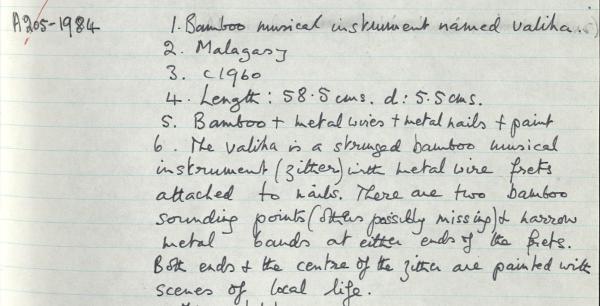 A205-1984 1. Bamboo musical instrument named valiha...
2. Malagasy
3. c1960
4. Length: 58.5 cms. d: 5.5 cms.
5. Bamboo + metal wires + metal nails + paint
6. The valiha is a stringed bamboo musical
instrument (zither) with metal wire frets
attached to nails. There are two bamboo
sounding points (others possibly missing) & narrow
metal bands at either ends of the frets.
Both ends & the centre of the zither are painted with
scenes of local life.